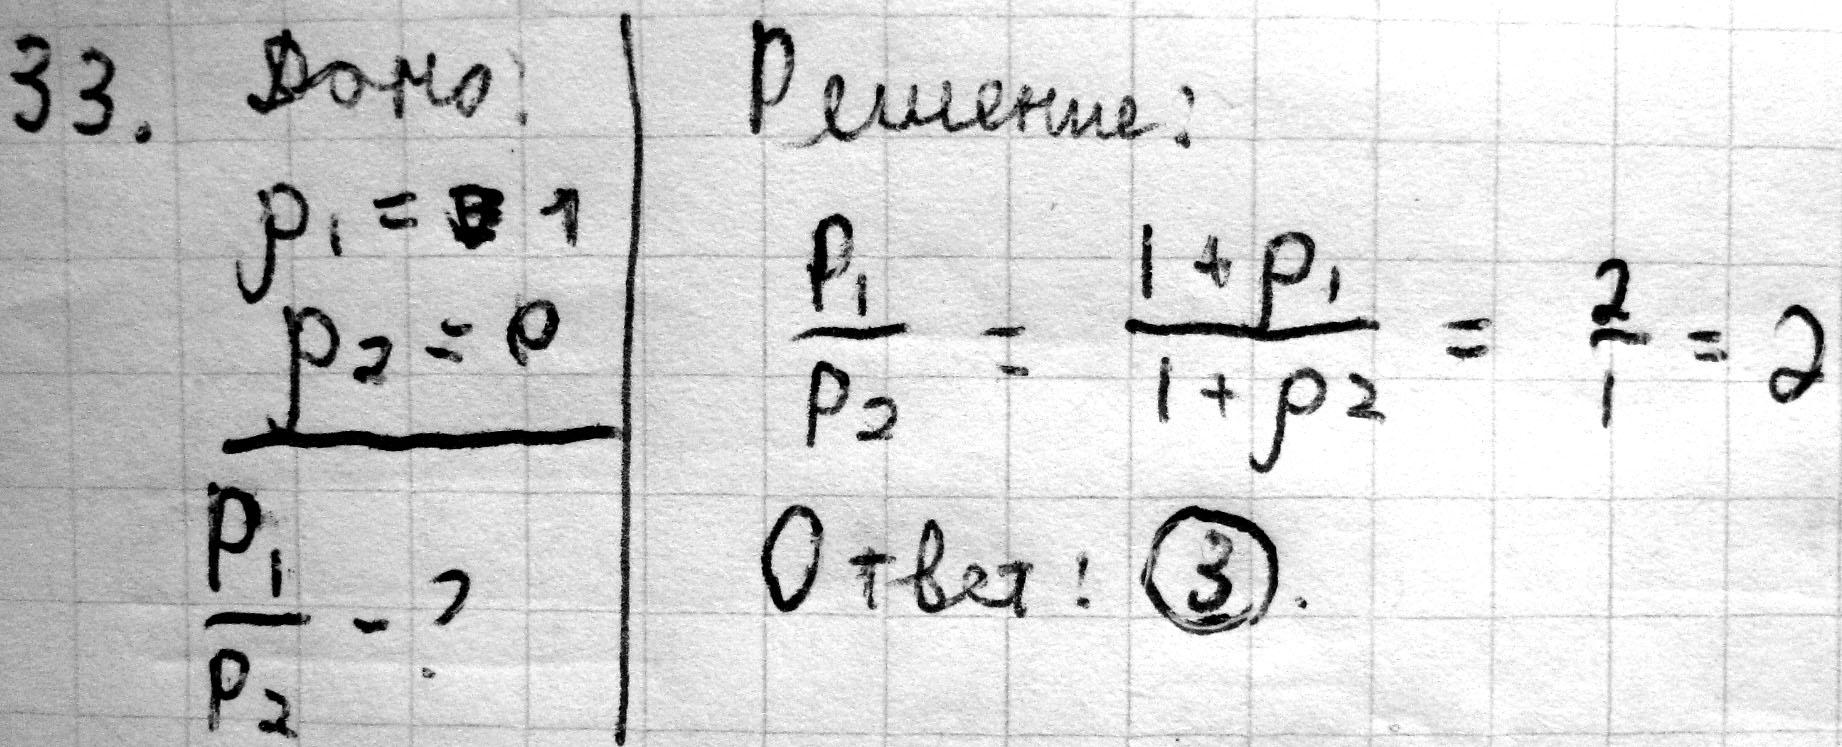 33. Дано:
ρ₁ = 1
ρ₂ = 0
P₁/P₂ - ?
Решение:
P₁/P₂ = (1 + ρ₁)/(1 + ρ₂) = 2/1 = 2
Ответ: ③.